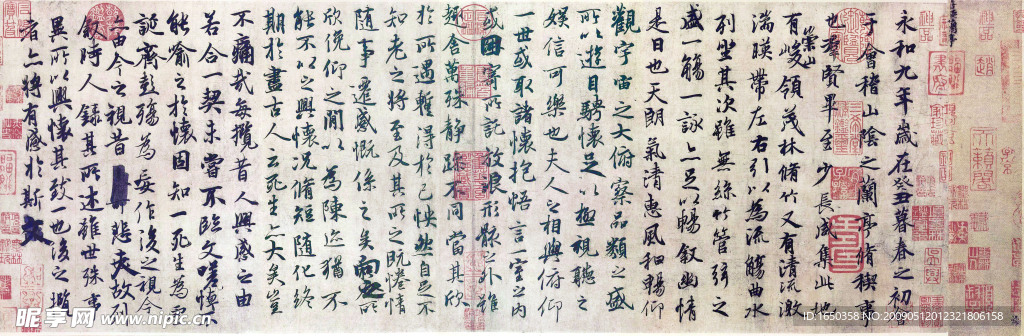 永和九年歲在癸丑暮春之初
于會稽山陰之蘭亭脩稧事
也群賢畢至少長咸集此地
崇山
有峻領茂林脩竹又有清流激
湍暎帶左右引以為流觴曲水
列坐其次雖無絲竹管弦之
盛一觴一詠亦足以暢敘幽情
是日也天朗氣清惠風和暢仰
觀宇宙之大俯察品類之盛
所以遊目騁懷足以極視聽之
娛信可樂也夫人之相與俯仰
一世或取諸懷抱悟言一室之內
或因寄所託放浪形骸之外雖
趣舍萬殊靜躁不同當其欣
於所遇暫得於己怏然自足不
知老之將至及其所之既惓情
隨事遷感慨係之矣向之所
欣俛仰之閒以為陳迹猶不
能不以之興懷況脩短隨化終
期於盡古人云死生亦大矣豈
不痛哉每攬昔人興感之由
若合一契未嘗不臨文嗟悼不
能喻之於懷固知一死生為虛
誕齊彭殤為妄作後之視今
亦由今之視昔悲夫故列
敘時人錄其所述雖世殊事
異所以興懷其致一也後之攬
者亦將有感於斯文
昵享网 www.nipic.cn
ID:1650358 NO:20090512012321806158